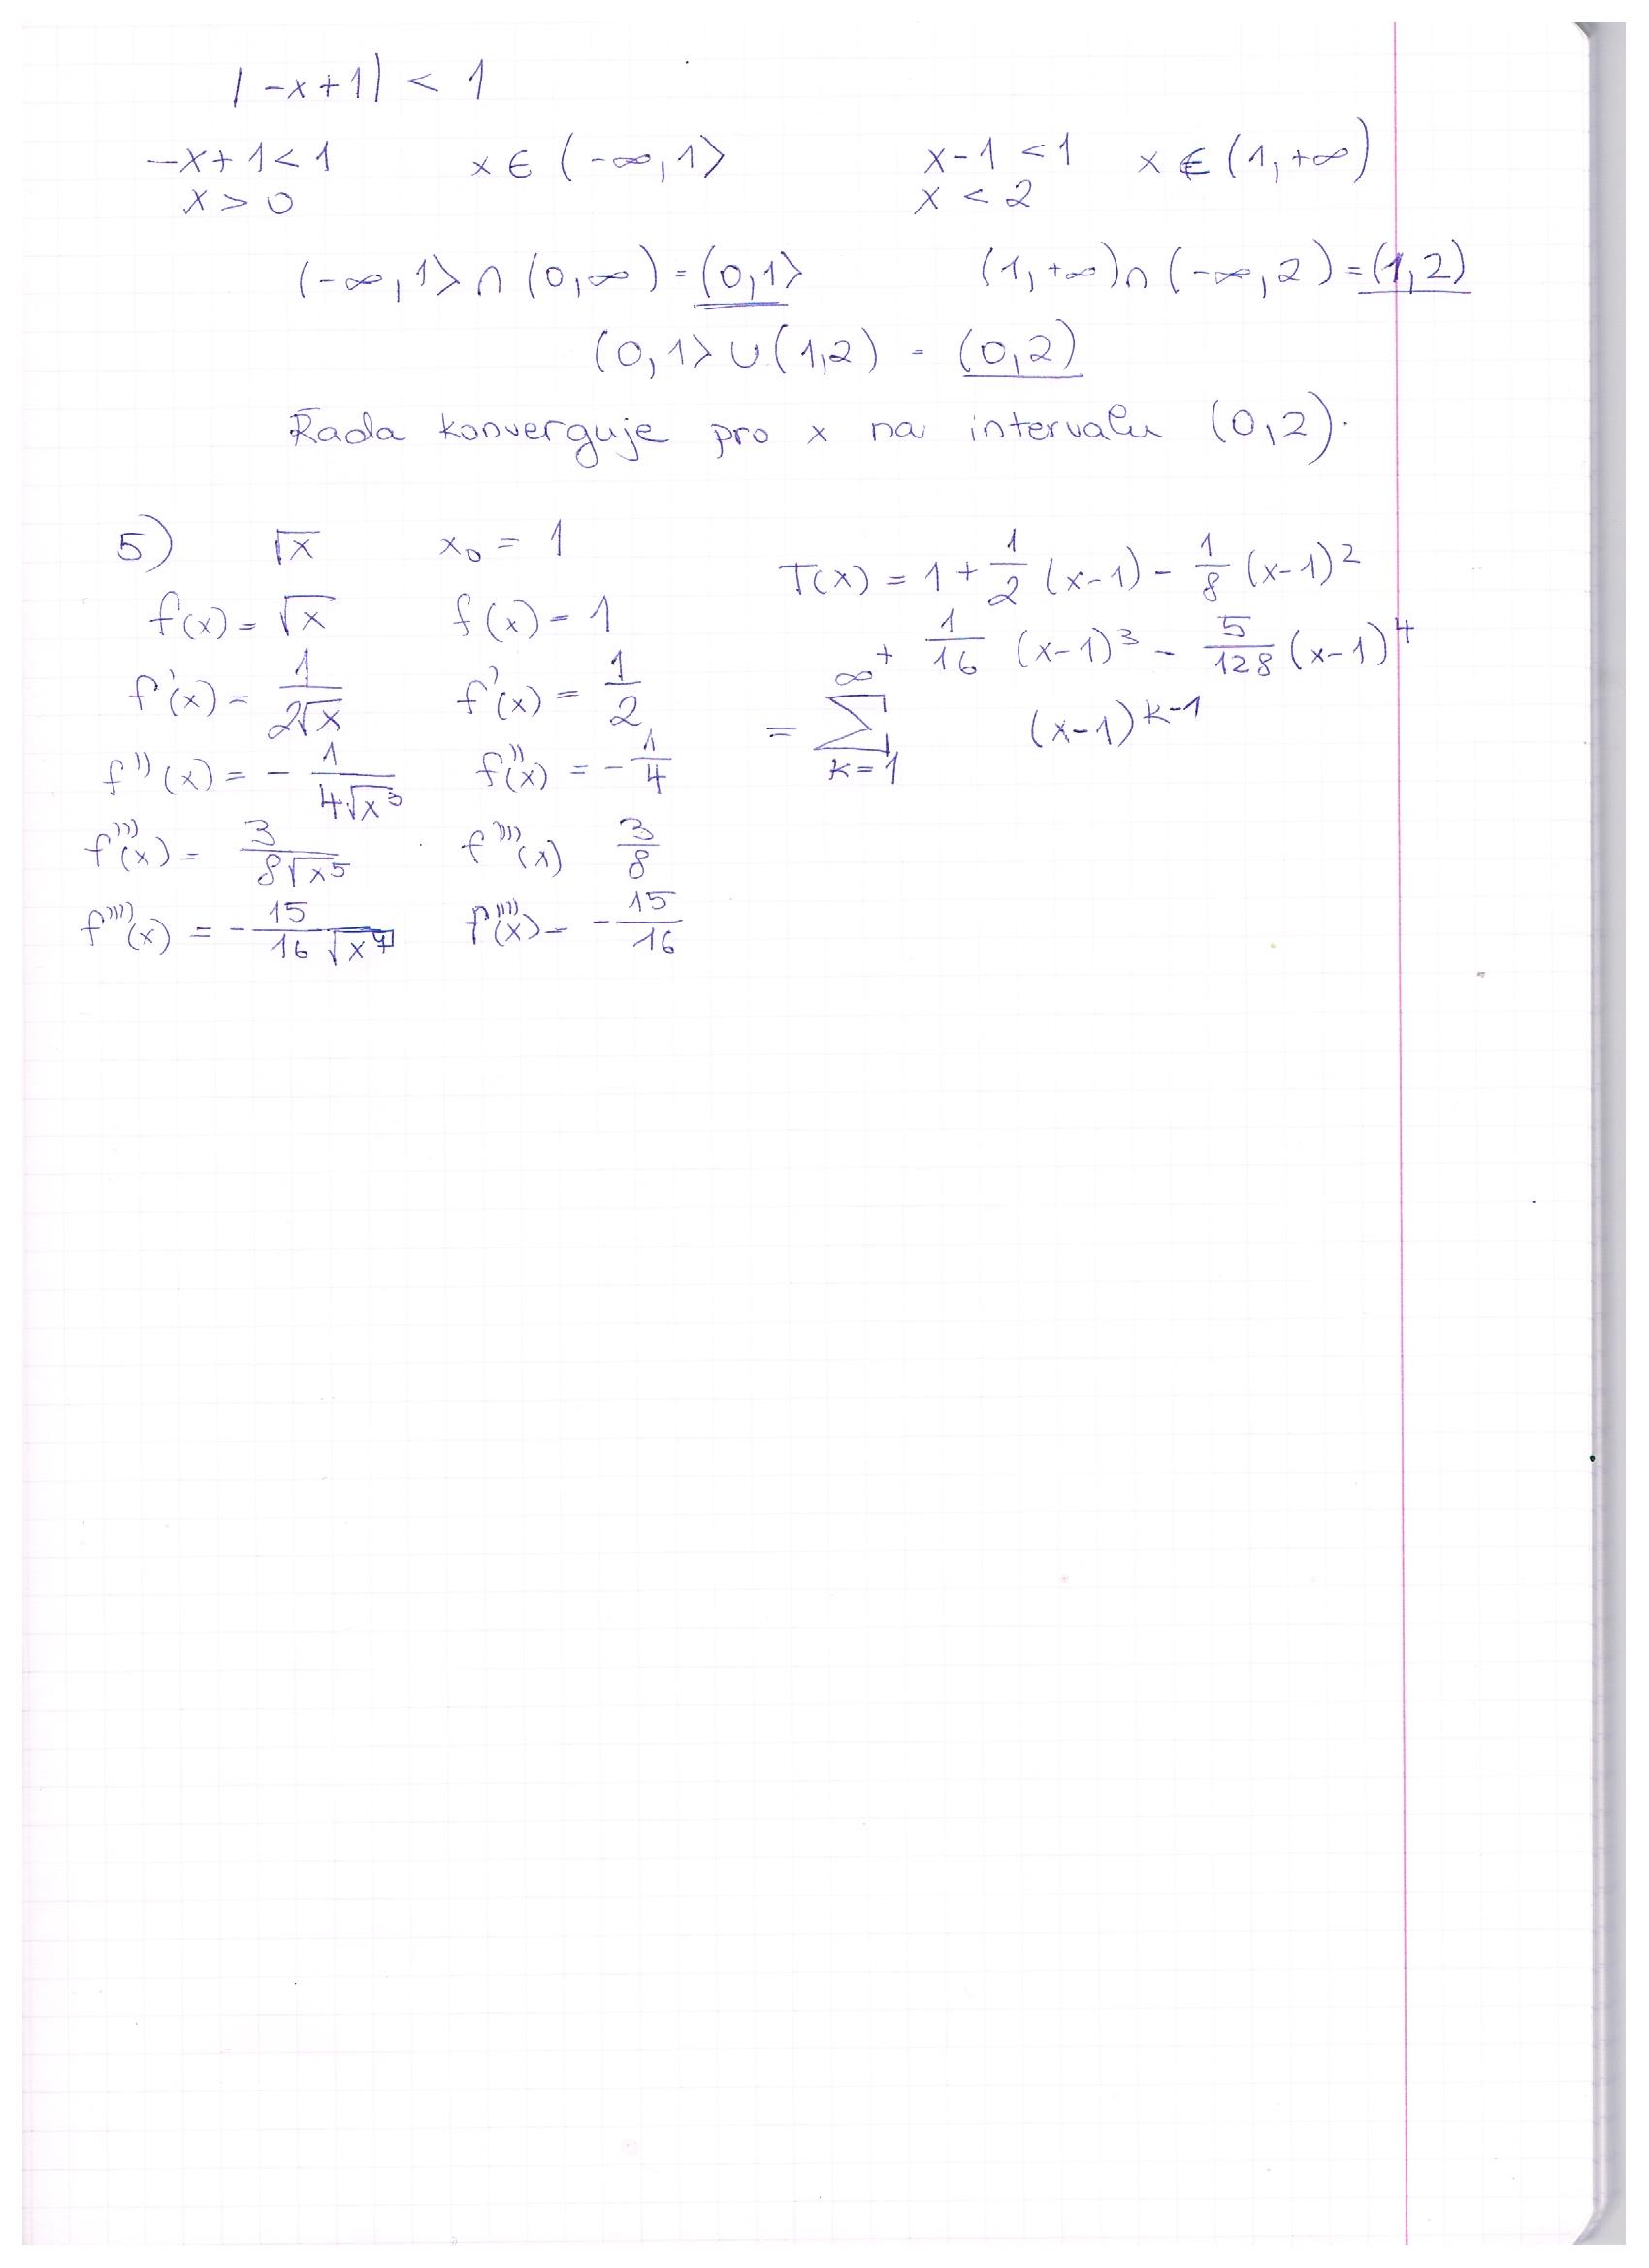 |-x+1| < 1
-x+1<1 x∈(-∞,1⟩ x-1<1 x∈(1,+∞)
x>0 x<2
(-∞,1⟩∩(0,∞)=(0,1⟩ (1,+∞)∩(-∞,2)=(1,2)
(0,1⟩∪(1,2) = (0,2)
Řada konverguje pro x na intervalu (0,2).
5) √x x₀ = 1
f(x) = √x f(x) = 1
f'(x) = 1/(2√x) f'(x) = 1/2
f''(x) = - 1/(4√x³) f''(x) = - 1/4
f'''(x) = 3/(8√x⁵) f'''(x) 3/8
f''''(x) = - 15/(16√x⁷) f''''(x) = - 15/16
T(x) = 1 + 1/2 (x-1) - 1/8 (x-1)²
+ 1/16 (x-1)³ - 5/128 (x-1)⁴
= ∞∑k=1 (x-1)^(k-1)